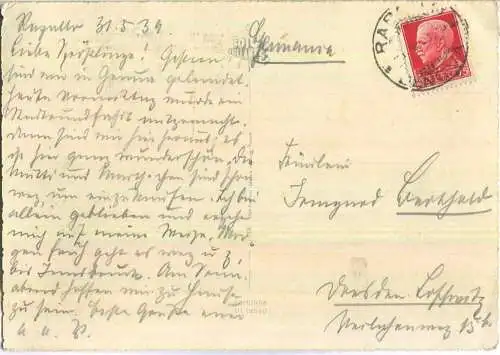 Rapallo 31.5.39
Liebe Spößlinge! Gestern
sind wir in Genua gelandet,
heute Vormittag wurde ein
Stadtrundfahrt mitgemacht,
dann sind wir hier heraus, es
ist hier ganz wunderschön. Die
Mutti und Marthchen sind schon
weg um einzukaufen. Ich bin
allein geblieben und
mich auf meine Weise. Mor-
gen früh geht es weg u. z.
bis Innsbruck. Am Sonn-
abend hoffen wir zu Hause
zu sein. Beste Grüße euer
a. a. P.
Germania
RAPALLO
Fräulein
Irmgard Berthold
Dresden Loschwitz
15 b